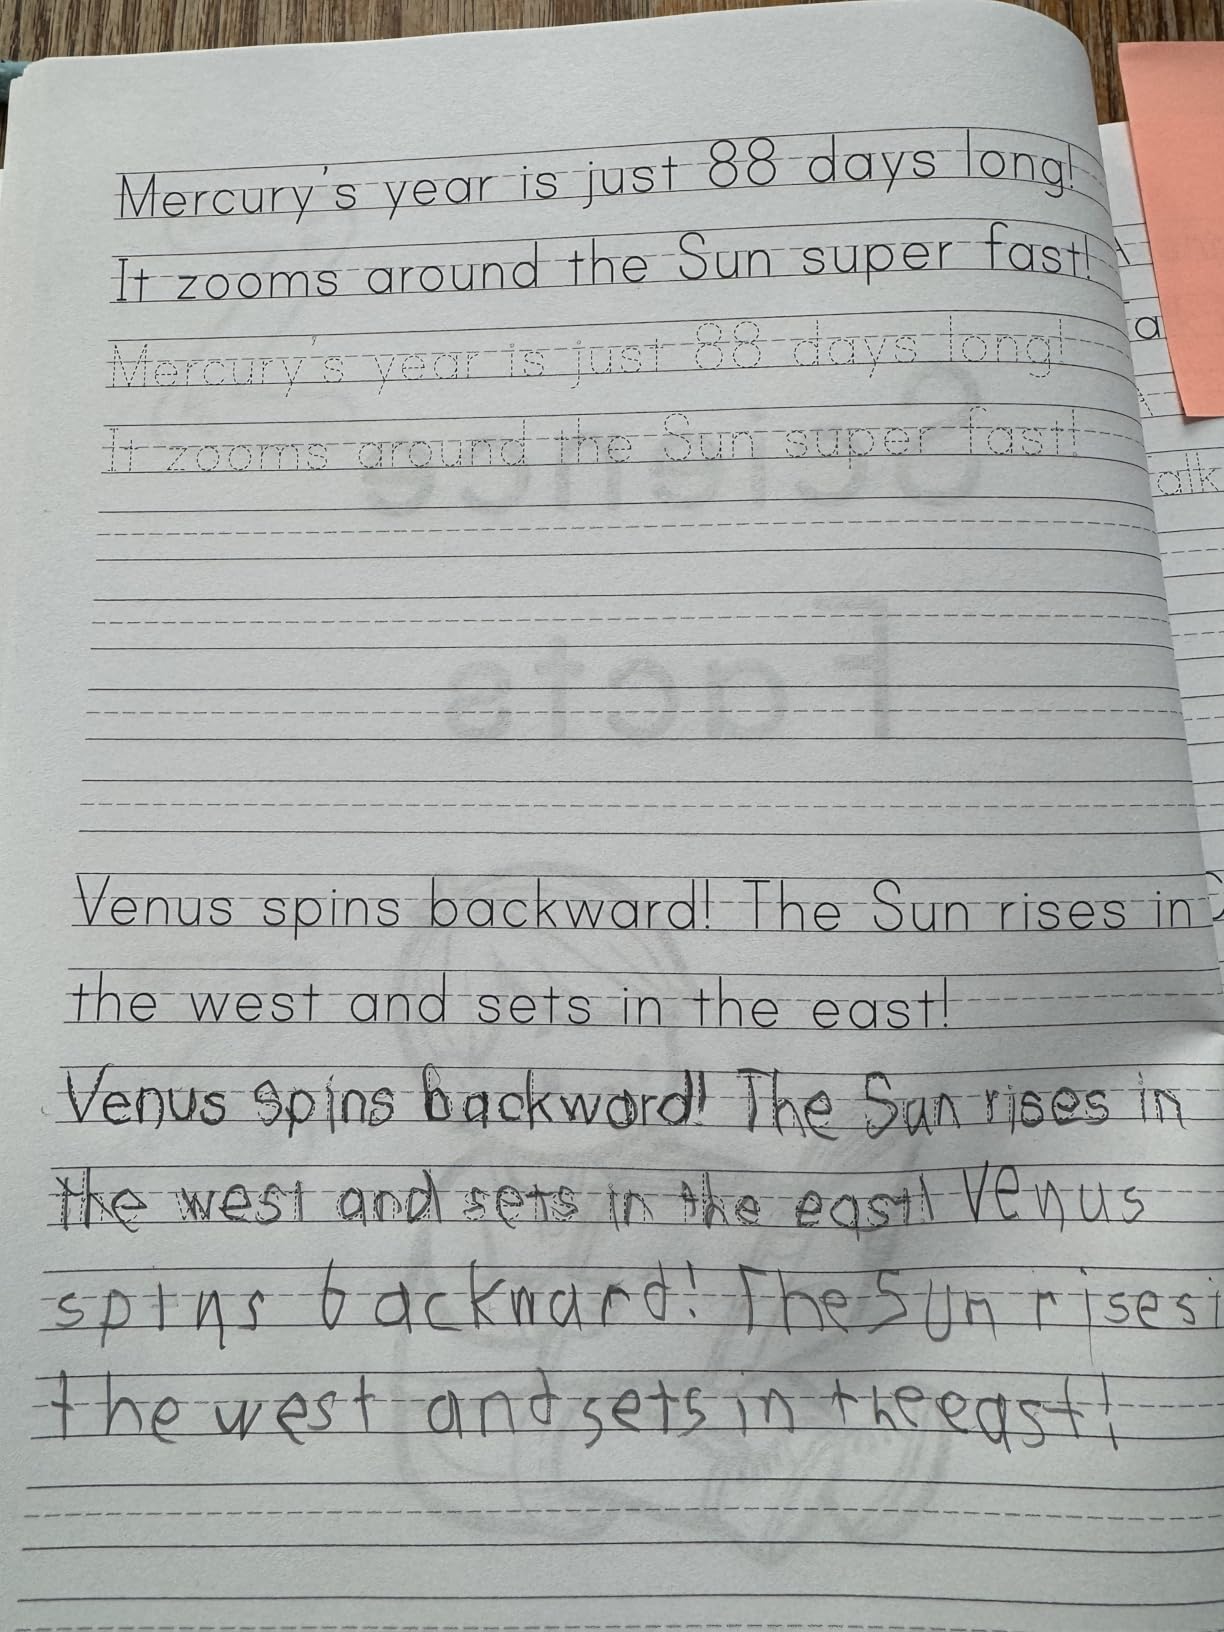 Mercury's year is just 88 days long!
It zooms around the Sun super fast!
Mercury's year is just 88 days long!
It zooms around the Sun super fast!
Science
Facts
Venus spins backward! The Sun rises in
the west and sets in the east!
Venus spins backward! The Sun rises in
the west and sets in the east! Venus
spins backward! The Sun rises i
the west and sets in the east!
a
alk